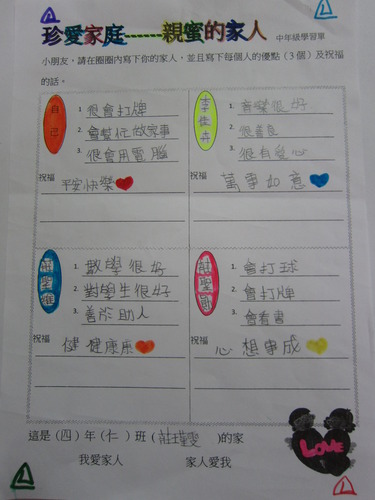 珍愛家庭------親蜜的家人 中年級學習單
小朋友，請在圈圈內寫下你的家人，並且寫下每個人的優點（3個）及祝福
的話。
自己
1. 很會打牌
2. 會幫忙做家事
3. 很會用電腦
祝福 平安快樂
1. 音樂很好
2. 很善良
3. 很有愛心
祝福 萬事如意
1. 數學很好
2. 對學生很好
3. 善於助人
祝福 健健康康
1. 會打球
2. 會打牌
3. 會看書
祝福 心想事成
這是（四）年（仁）班（ ）的家
我愛家人 家人愛我
LOVE